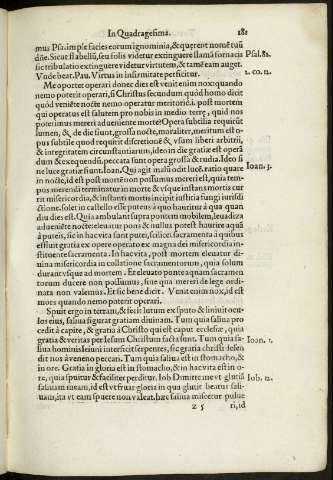 In Quadragesima. 181
mus Psa. imple facies eorum ignominia, & querent nomē tuū Psal. 82.
dñe. Sicut flabellū, seu folis videtur extinguere flamā fornacis
sic tribulatio extinguere videtur virtutem, & tamē eam auget.
Vnde beat. Pau. Virtus in infirmitate perficitur. 2. co. 12.
Me oportet operari donec dies est veniet enim nox: quando
nemo poterit operari, si Christus secundum quod homo dicit
quòd veniēte nocte nemo operatur meritoriè. post mortem
qui operatus est salutem pro nobis in medio terre, quid nos
poterimus mereri adueniente morte? Opera subtilia requirūt
lumen, & de die fiunt, grossa nocte, moraliter, meritum est o-
pus subtile quod requirit discretionē & vsum liberi arbitrij,
& integritatem circunstantiarum, ideo in die gratiæ est operā
dum & exequendū. peccata sunt opera grossa & rudia. Ideo si
ne luce gratiæ fiunt. Ioan. Qui agit malū odit lucē. ratio quare Ioan. 3.
in nocte, id est post mortē non possumus mereri est, quia tem-
pus merendi terminatur in morte & vsque instans mortis cur
rit misericordia, & instanti mortis incipit iustitia fungi iurisdi
ctione. solet in castello esse puteus à quo hauritur à qua quan
diu dies est. Quia ambulant supra pontem mobilem, leuadiza
ad ueniēte nocte eleuatur pons & nullus potest haurire aquā
sic in hac vita nocte sunt putei, scilicet sacramenta à quibus
effluit gratia ex opere operato ex magna dei misericordia in-
stituente sacramenta. In hac vita, post mortem eleuatur di-
uina misericordia in collatione sacramentorum, quia solum
durant vsque ad mortem. Et eleuato ponte aquam sacramen
torum ducere non possumus, sine qua mereri de lege ordi-
nata non valemus. Et sic bene dicit. Venit enim nox, id est
mors quando nemo paterit operari.
Spuit ergo in terram, & fecit lutum ex sputo & liniuit ocu-
los eius, saliua figurat gratiam diuinam. Tum quia saliua pro
cedit à capite, & gratia à Christo qui est caput ecclesiæ, quia
gratia & veritas per Iesum Christum facta sunt. Tum quia sa- Ioan. 1.
liua hominis Ieiuni interficit serpentes, sic gratia christi defen
dit nos à veneno peccati. Tum quia saliua est in stomacho, &
in ore. Gratia in gloria est in stomacho, & in hac vita est in o-
re, quia spuitur & faciliter perditur. Iob Dimitte me vt glutiā Iob. 12.
saliuam meam, id est vt fruar gloria in qua glutit beatus sali-
uam, ita vt eam spuere non valeat. hæc saliua miscetur pulue
Z 5 ri, id